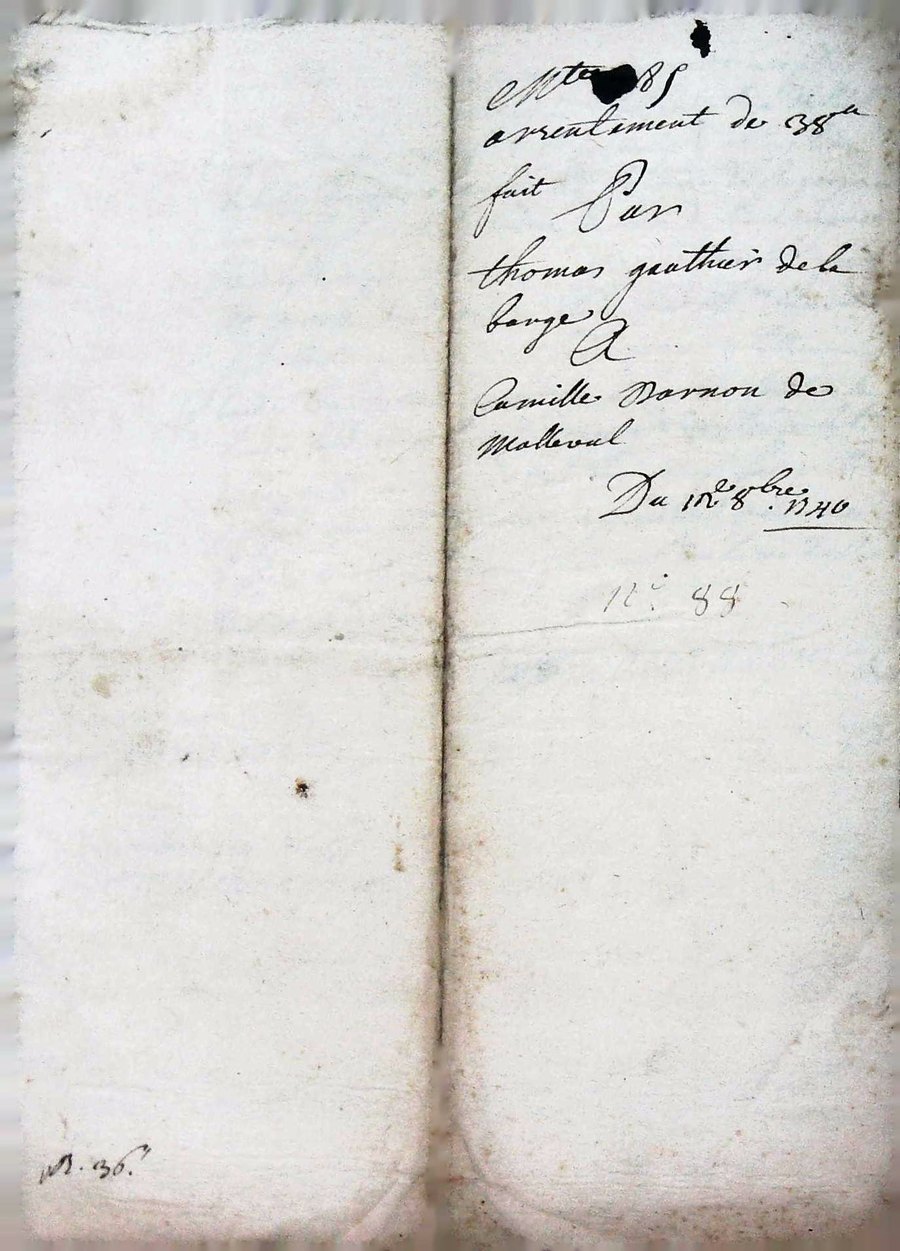 85
arrentement de 38ˡˡ
fait Par
thomas gauthier dela
barge
A
Camille Darnon de
Malleval
Du 12ᵉ 8ᵇʳᵉ. 1740
nº. 88
36.